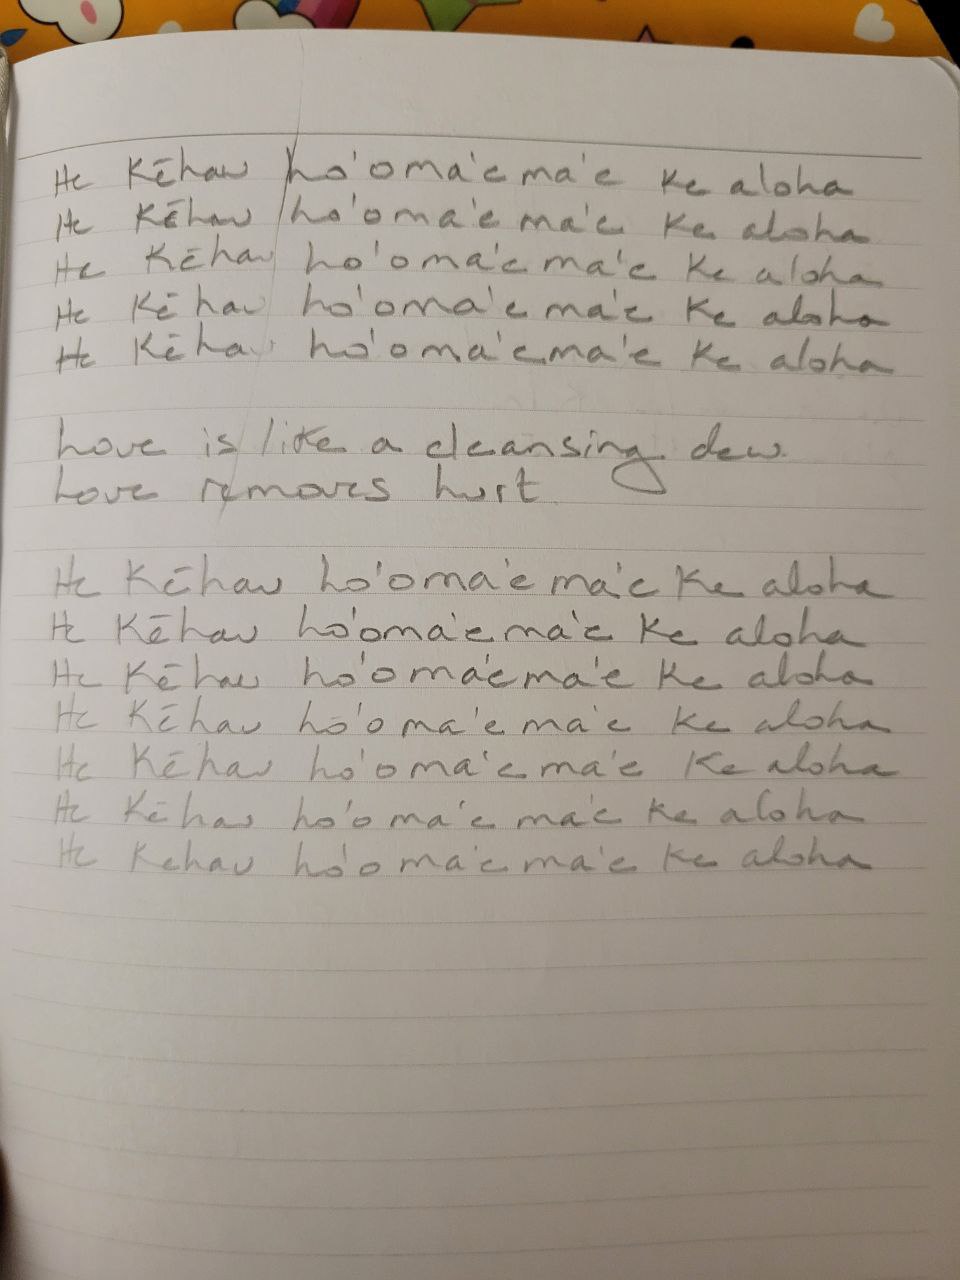 He Kēhau ho'oma'e ma'e ke aloha
He Kēhau ho'oma'e ma'e ke aloha
He Kēhau ho'oma'e ma'e ke aloha
He Kēhau ho'oma'e ma'e ke aloha
He Kēhau ho'oma'ema'e ke aloha
Love is like a cleansing dew.
Love removes hurt
He Kēhau ho'oma'e ma'e ke aloha
He Kēhau ho'oma'ema'e ke aloha
He Kēhau ho'oma'ema'e ke aloha
He Kēhau ho'oma'e ma'e ke aloha
He Kēhau ho'oma'e ma'e ke aloha
He Kēhau ho'oma'e ma'e ke aloha
He Kehau ho'oma'e ma'e ke aloha